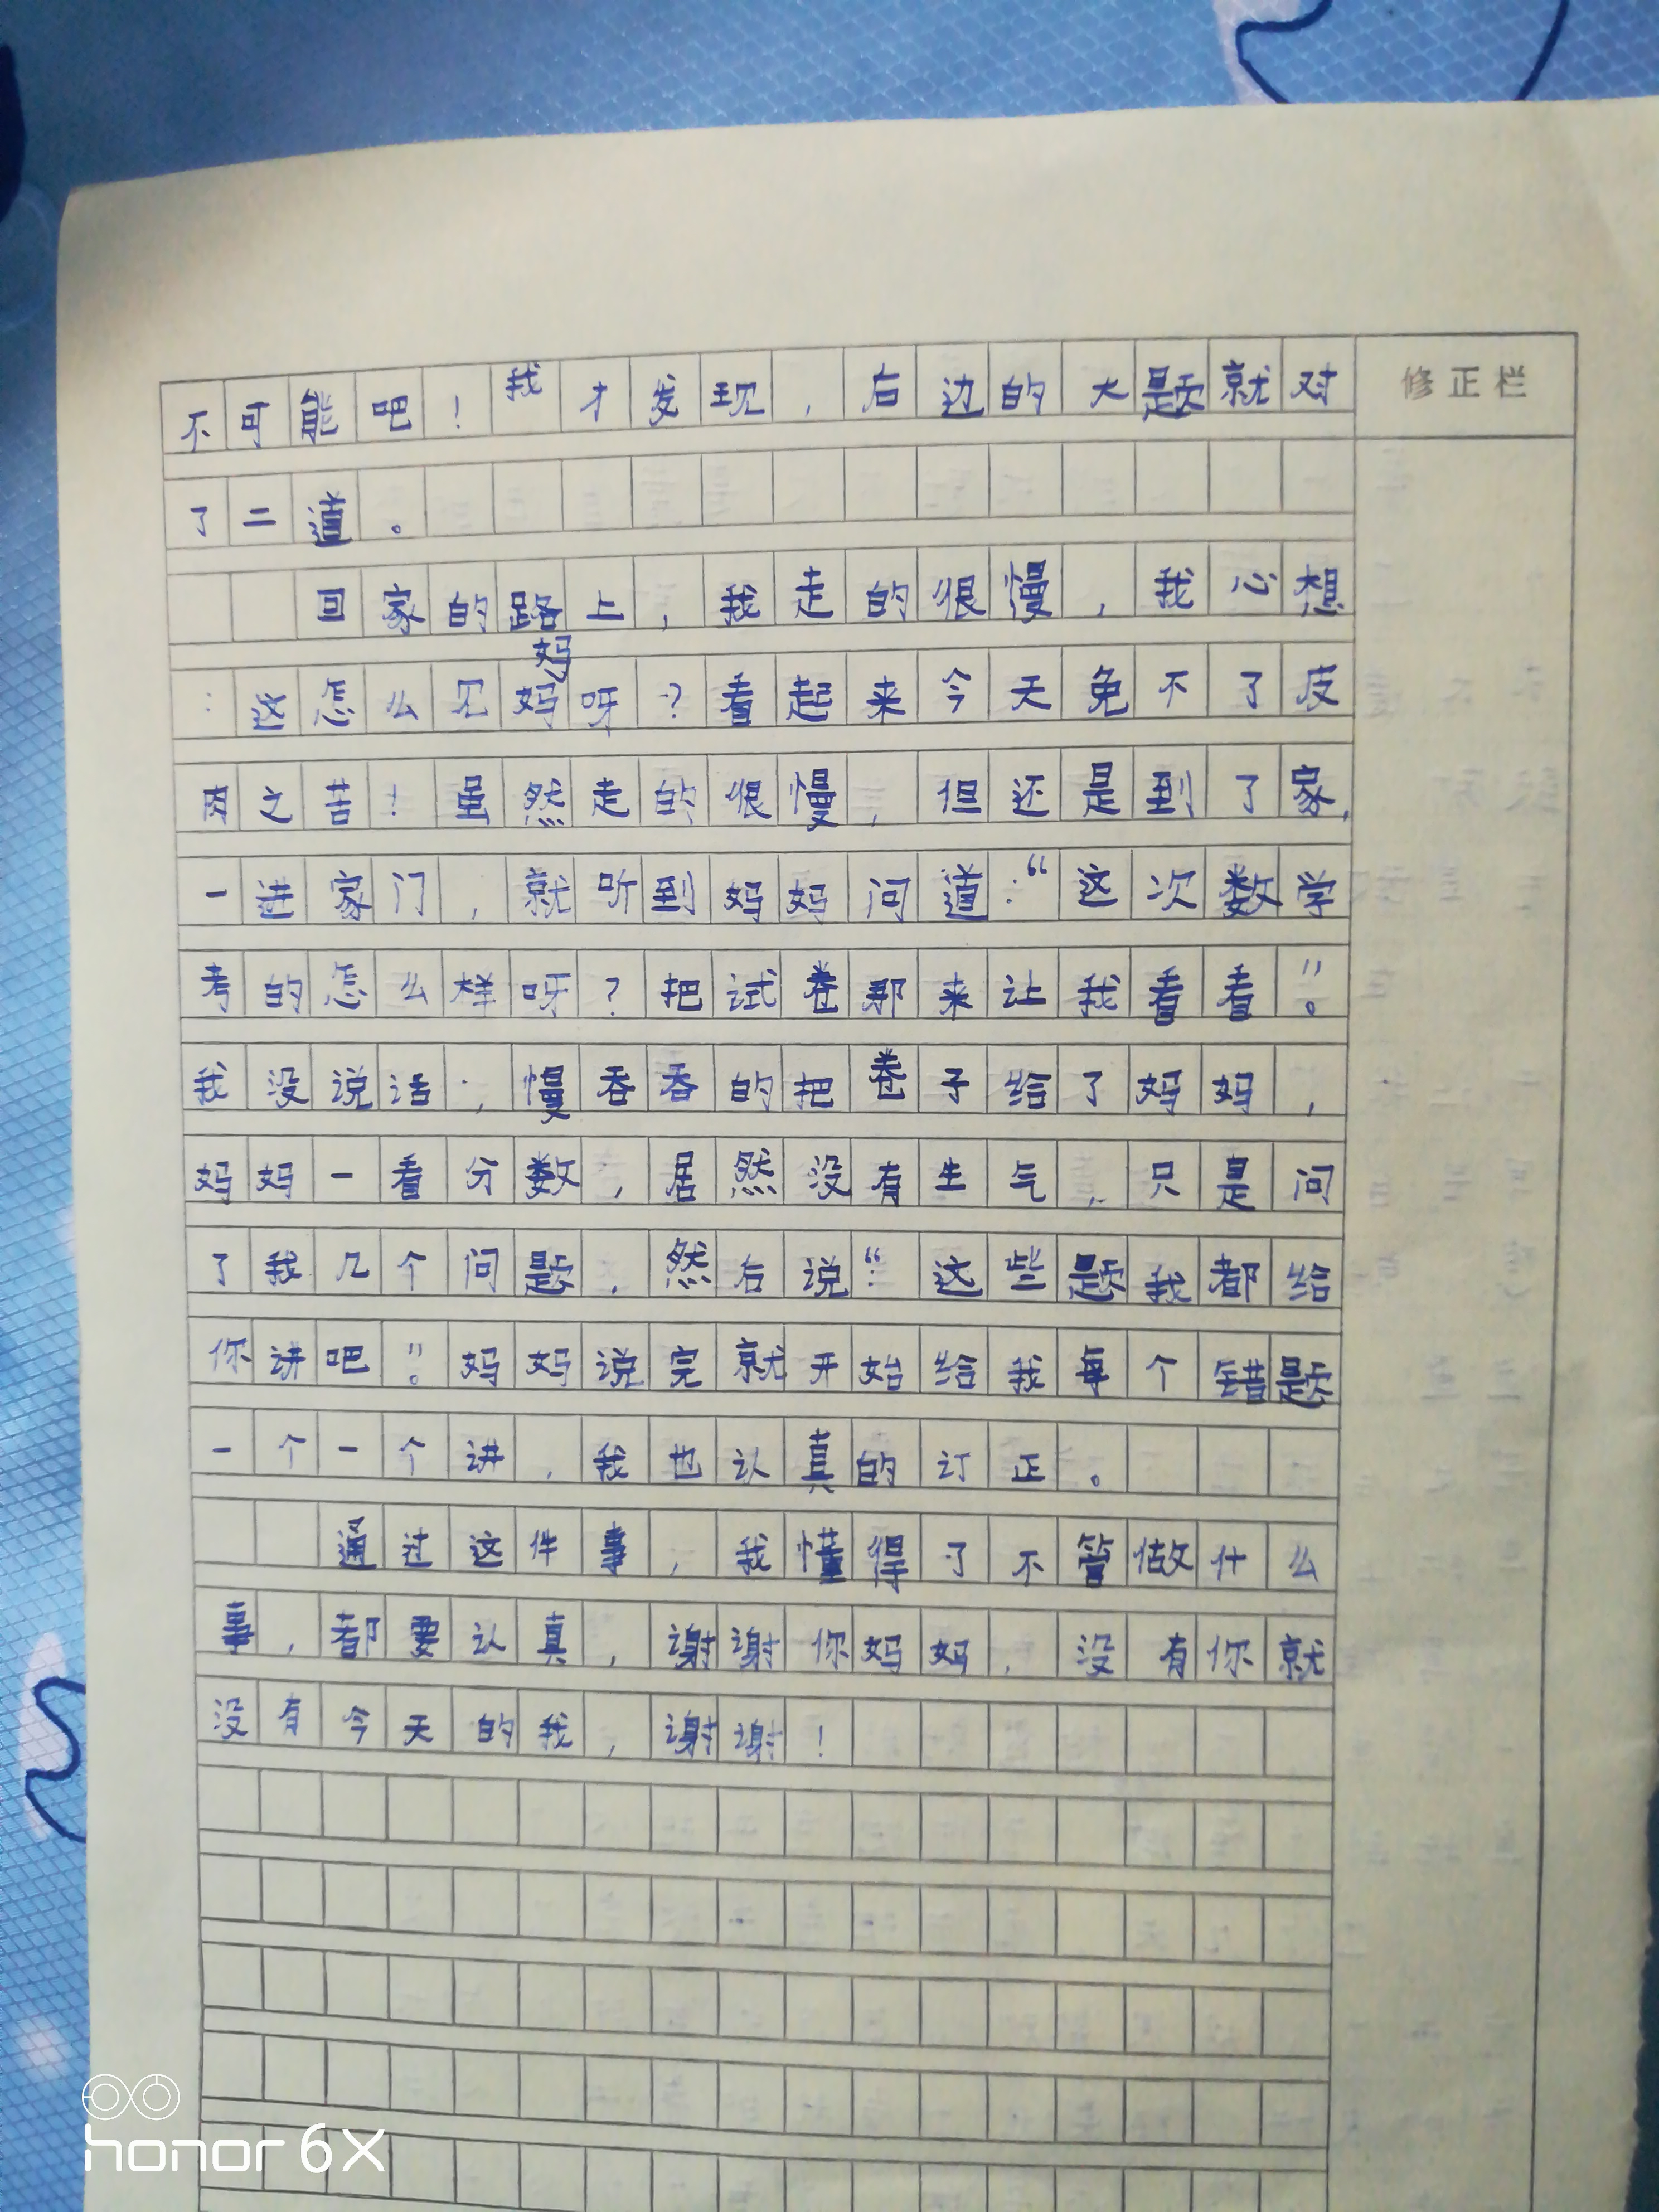 不可能吧！我才发现，右边的大题就对
修正栏
了二道。
回家的路上，我走的很慢，我心想
：这怎么见妈妈呀？看起来今天免不了皮
肉之苦！虽然走的很慢，但还是到了家，
一进家门，就听到妈妈问道：“这次数学
考的怎么样呀？把试卷那来让我看看”。
我没说话，慢吞吞的把卷子给了妈妈，
妈妈一看分数，居然没有生气，只是问
了我几个问题，然后说：“这些题我都给
你讲吧”。妈妈说完就开始给我每个错题
一个一个讲，我也认真的订正。
通过这件事，我懂得了不管做什么
事，都要认真，谢谢你妈妈，没有你就
没有今天的我，谢谢！
honor 6X